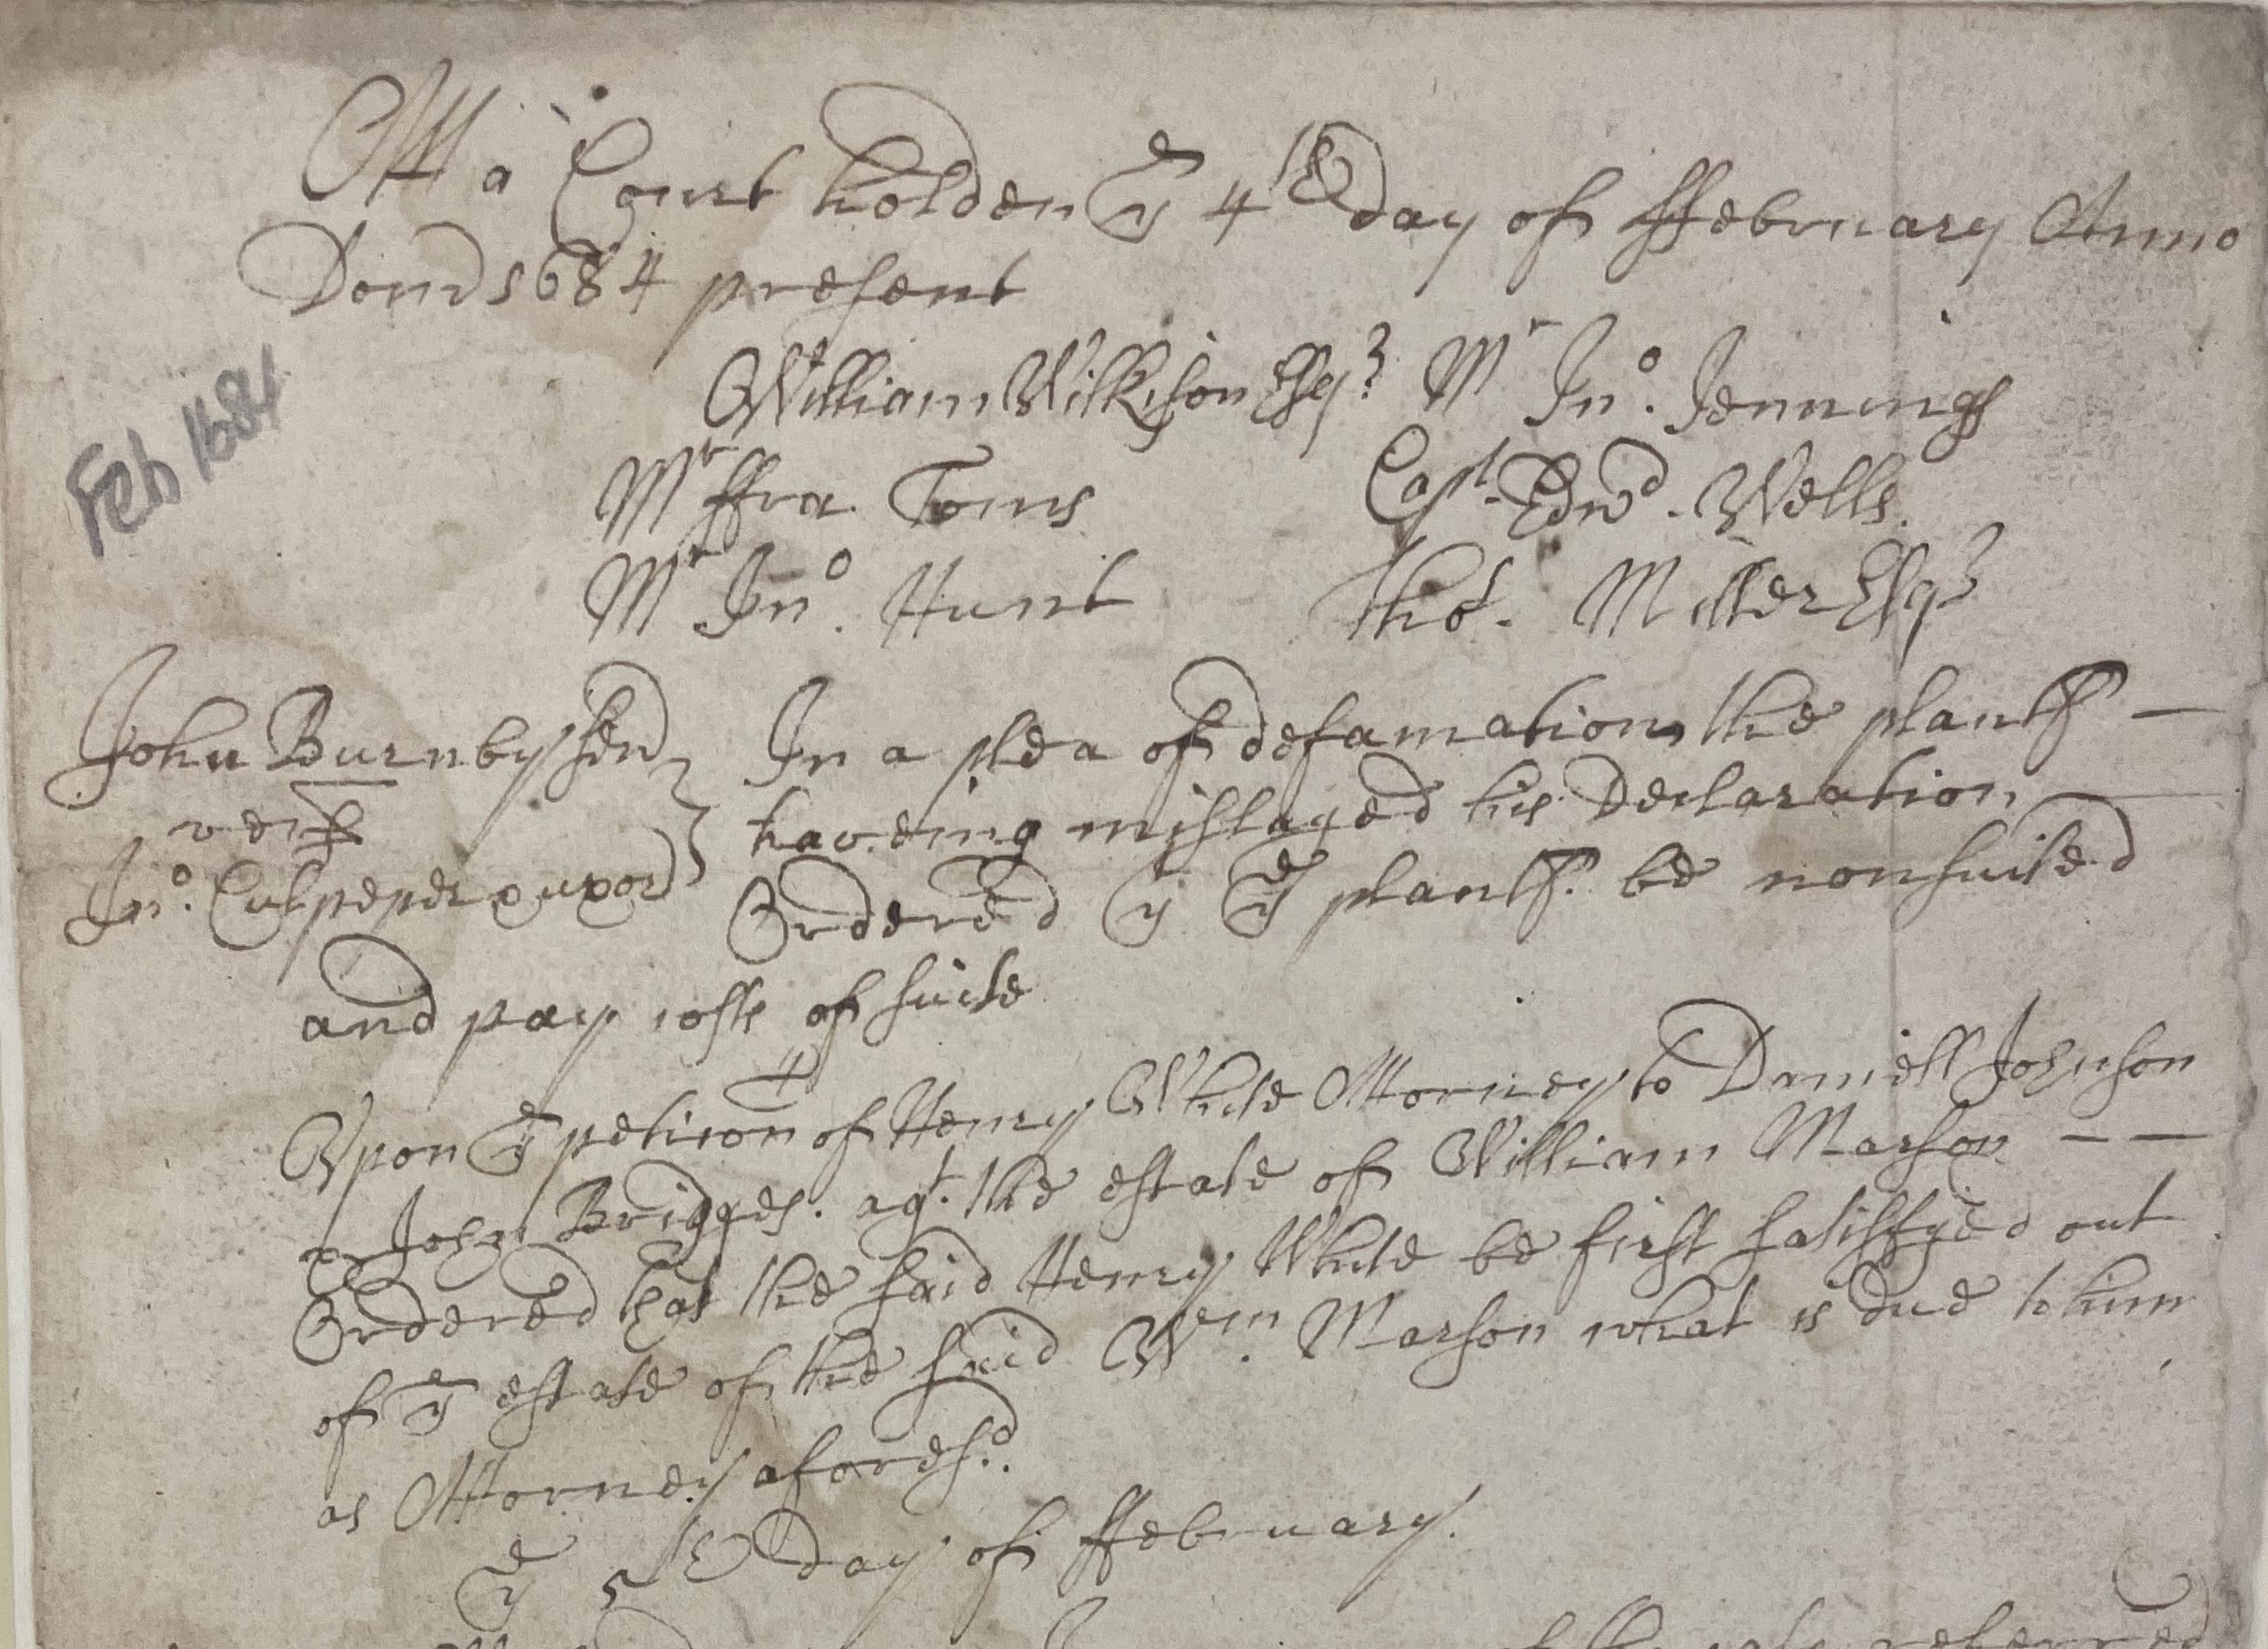 Att a Court holden ye 4th day of ffebruary Anno
Dom 1684 present
Feb 1684
William Wilkison Esqr Mr Jno. Jennings
Mr ffra. Toms Capt. Edwd. Wells.
Mr Jno. Hunt Tho. Miller Esqr
John Burnby senr In a plea of defamation, the plantf —
vers haveing mislayed his Declaration —
Jno. Culpeper & uxor Ordered yt ye plantf. be nonsuited
and pay costs of suite
4
Upon ye peticon of Henry White Attorney to Daniell Johnson
& John Bridges. agt. the estate of William Marson — —
Ordered that the said Henry White be first satisfyed out
of ye estate of the said Wm. Marson what is due to him
as Attorney aforesd.
ye 5th day of ffebruary.